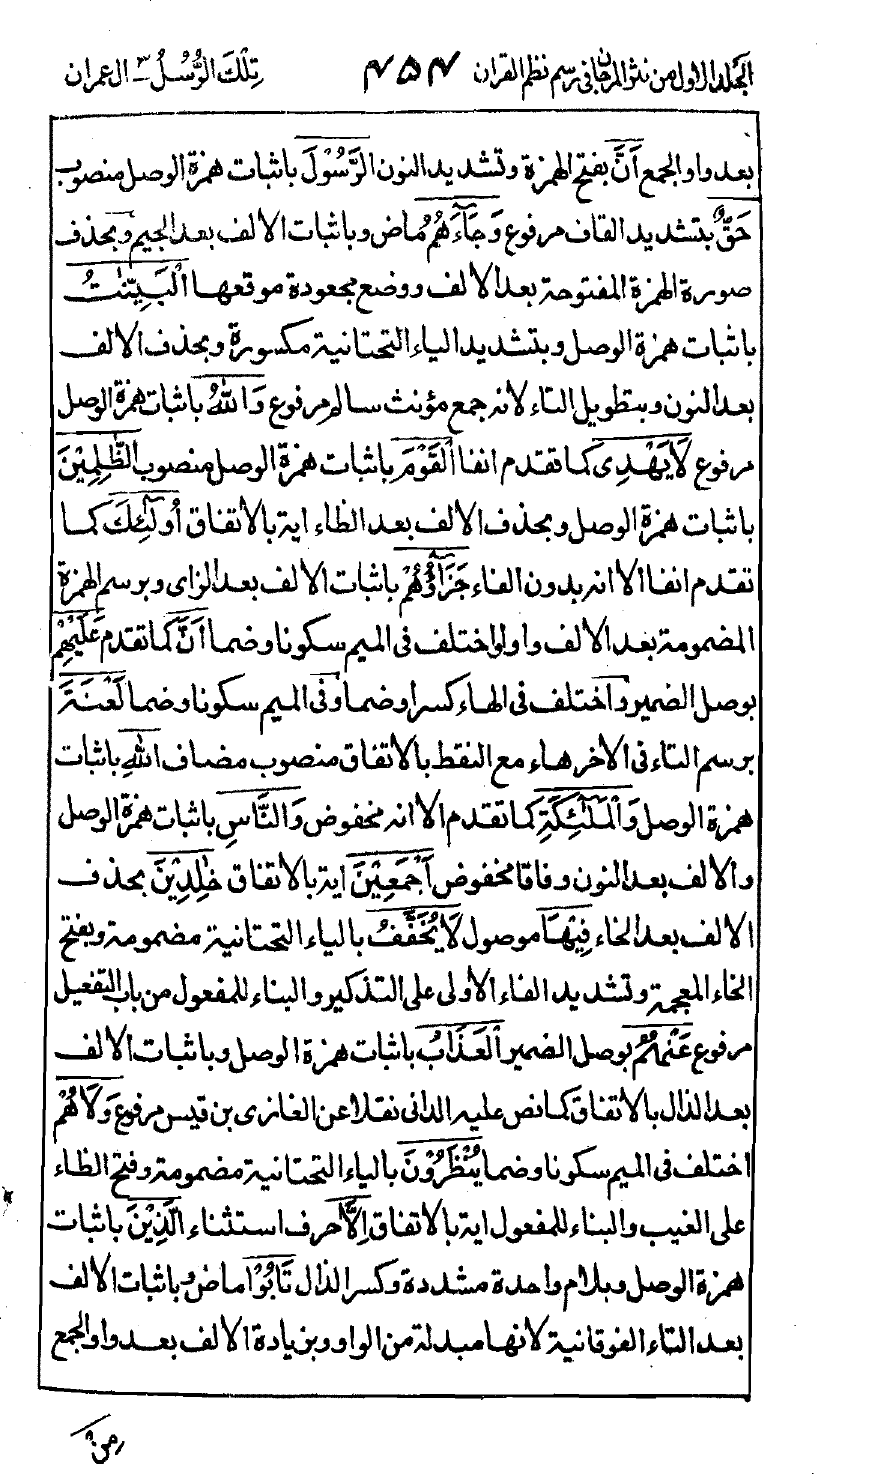 الجلد الاول من نثر المرجان في رسم نظم القران ٤٥٤ تِلْكَ الرُّسُلُ ٣ – ال عمران
بعد واو الجمع أَنَّ بفتح الهمزة وتشديد النون الرَّسُوْلَ باثبات همزة الوصل منصوب
حَقٌّ بتشديد القاف مرفوع وَجَآءَهُمُ ماض وباثبات الالف بعد الجيم وبحذف
صورة الهمزة المفتوحة بعد الالف ووضع مجعودة موقعها الْبَيِّنٰتُ
باثبات همزة الوصل وبتشديد الياء التحتانية مكسورة وبحذف الالف
بعد النون وبتطويل التاء لانه جمع مؤنث سالم مرفوع وَاللّٰهُ باثبات همزة الوصل
مرفوع لَا يَهْدِى كما تقدم انفا الْقَوْمَ باثبات همزة الوصل منصوب الظّٰلِمِيْنَ
باثبات همزة الوصل وبحذف الالف بعد الظاء اية بالاتفاق أُولٰٓئِكَ كما
تقدم انفا الا انه بدون الفاء جَزَآؤُهُمْ باثبات الالف بعد الزاى وبرسم الهمزة
المضمومة بعد الالف واوا واختلف فى الميم سكونا وضما أَنَّ كما تقدم عَلَيْهِمْ
بوصل الضمير واختلف فى الهاء كسرا وضما وفى الميم سكونا وضما لَعْنَةَ
برسم التاء فى الاخر هاء مع النقط بالاتفاق منصوب مضاف اللّٰهِ باثبات
همزة الوصل وَالْمَلٰٓئِكَةِ كما تقدم الا انه مخفوض وَالنَّاسِ باثبات همزة الوصل
والالف بعد النون وفاقا مخفوض أَجْمَعِيْنَ اية بالاتفاق خٰلِدِيْنَ بحذف
الالف بعد الخاء فِيْهَا موصول لَا يُخَفَّفُ بالياء التحتانية مضمومة وبفتح
الخاء المعجمة وتشديد الفاء الاولى على التذكير والبناء للمفعول من باب التفعيل
مرفوع عَنْهُمُ بوصل الضمير الْعَذَابُ باثبات همزة الوصل وباثبات الالف
بعد الذال بالاتفاق كما نص عليه الدانى نقلا عن الغازى بن قيس مرفوع وَلَا هُمْ
اختلف فى الميم سكونا وضما يُنْظَرُوْنَ بالياء التحتانية مضمومة وفتح الظاء
على الغيب والبناء للمفعول اية بالاتفاق اِلَّا حرف استثناء الَّذِيْنَ باثبات
همزة الوصل وبلام واحدة مشددة وكسر الذال تَابُوْا ماض وباثبات الالف
بعد التاء الفوقانية لانها مبدلة من الواو وبزيادة الالف بعد واو الجمع
من